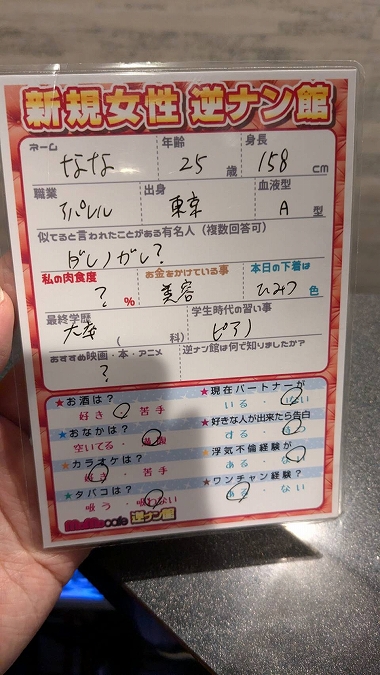 新規女性 逆ナン館
ネーム 年齢 身長
なな 25歳 158cm
職業 出身 血液型
アパレル 東京 A型
似てると言われたことがある有名人（複数回答可）
ダレノガレ？
私の肉食度 お金をかけている事 本日の下着は
？% 美容 ひみつ色
最終学歴 学生時代の習い事
大卒（ 科） ピアノ
おすすめ映画・本・アニメ 逆ナン館は何で知りましたか？
？
★お酒は？ ★現在パートナーが
好き・苦手 いる・いない
★おなかは？ ★好きな人が出来たら告白
空いてる・満腹 する・
★カラオケは？ ★浮気不倫経験が
好き・苦手 ある・ない
★タバコは？ ★ワンチャン経験は？
吸う・吸わない ある・ない
cafe 逆ナン館